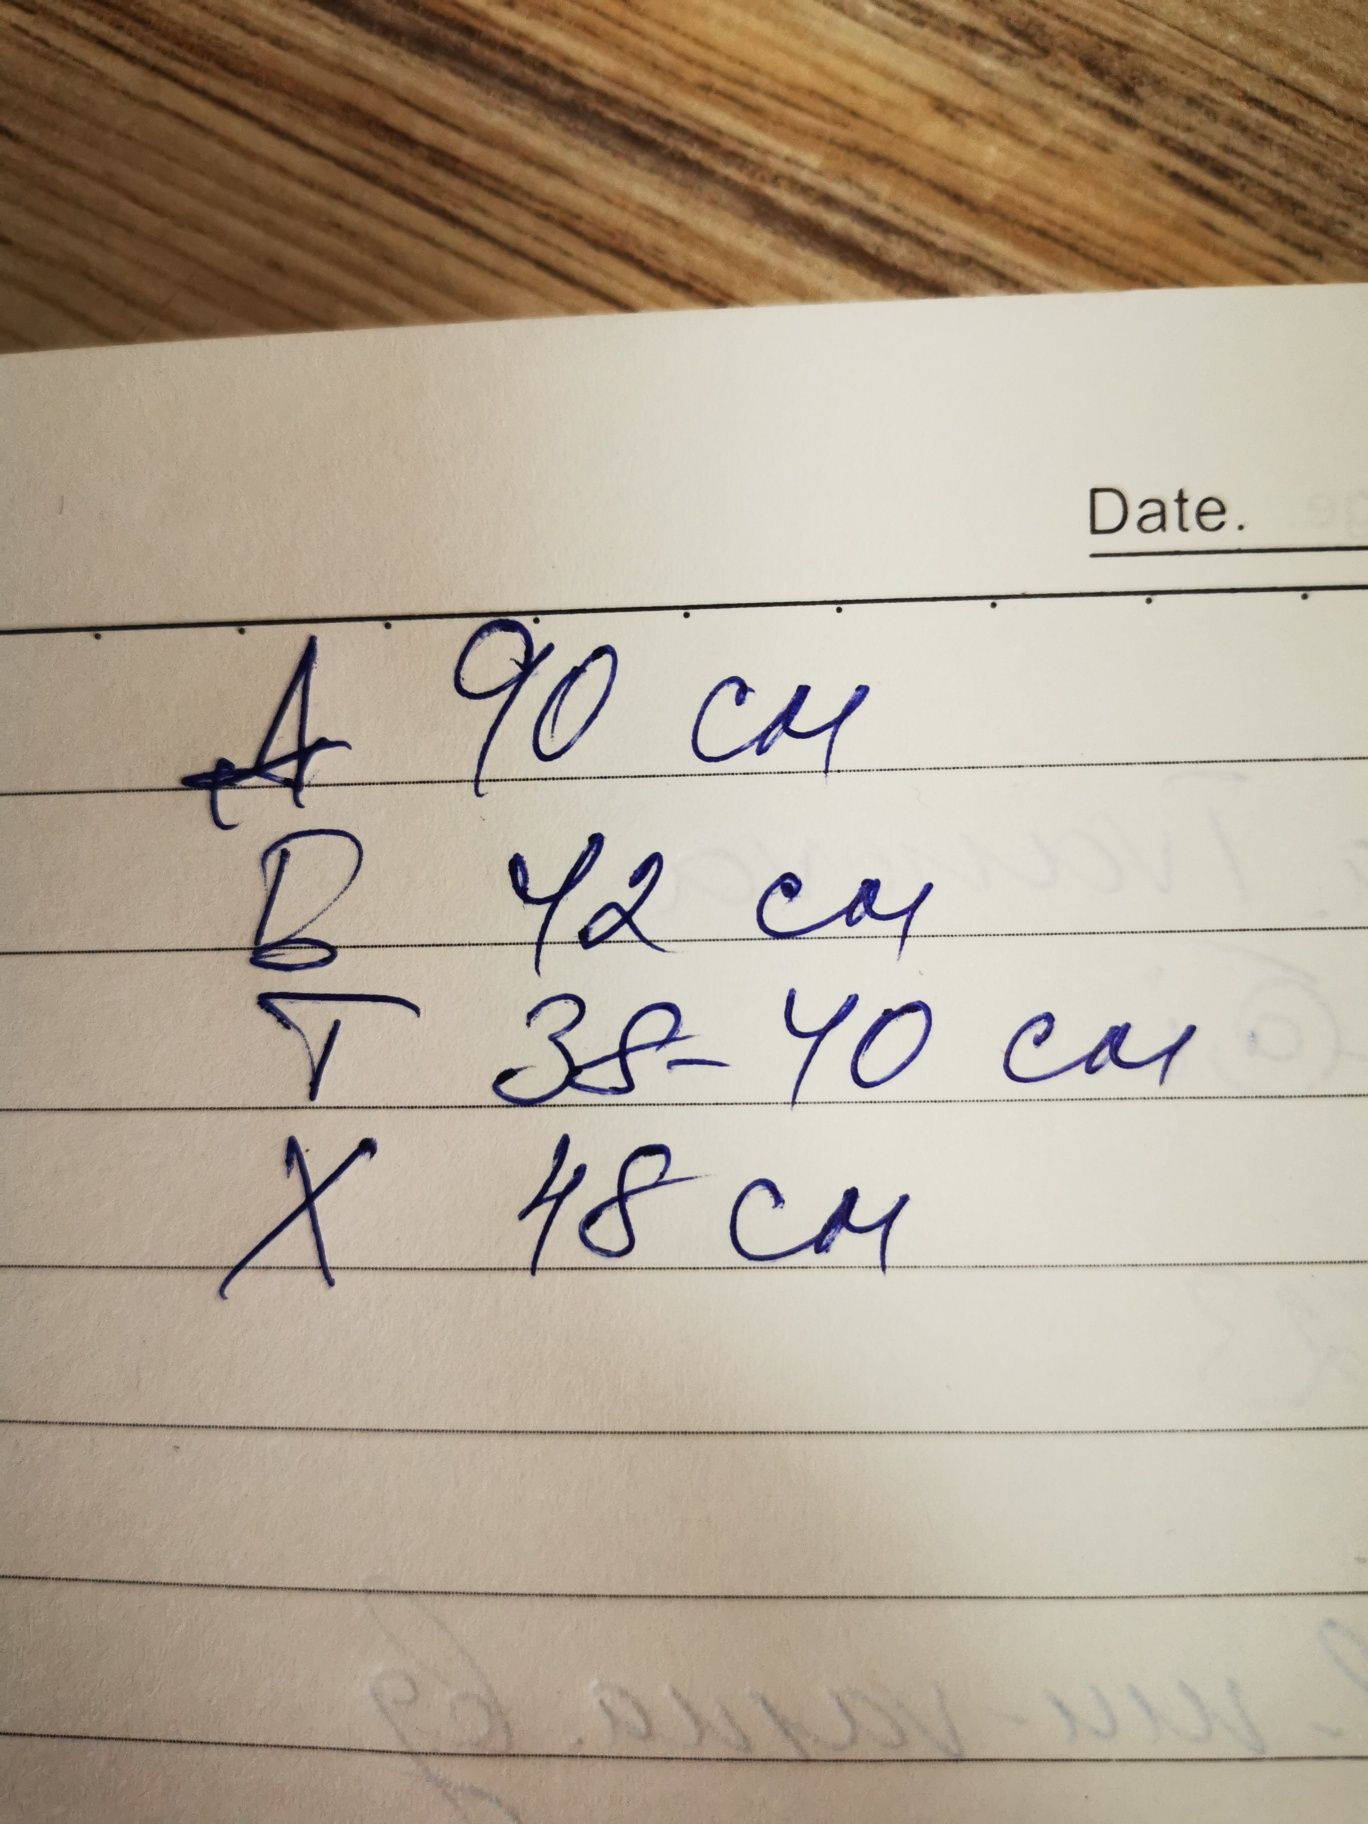 Date.
A 90 см
В 42 см
Т 38-40 см
Х 48 см